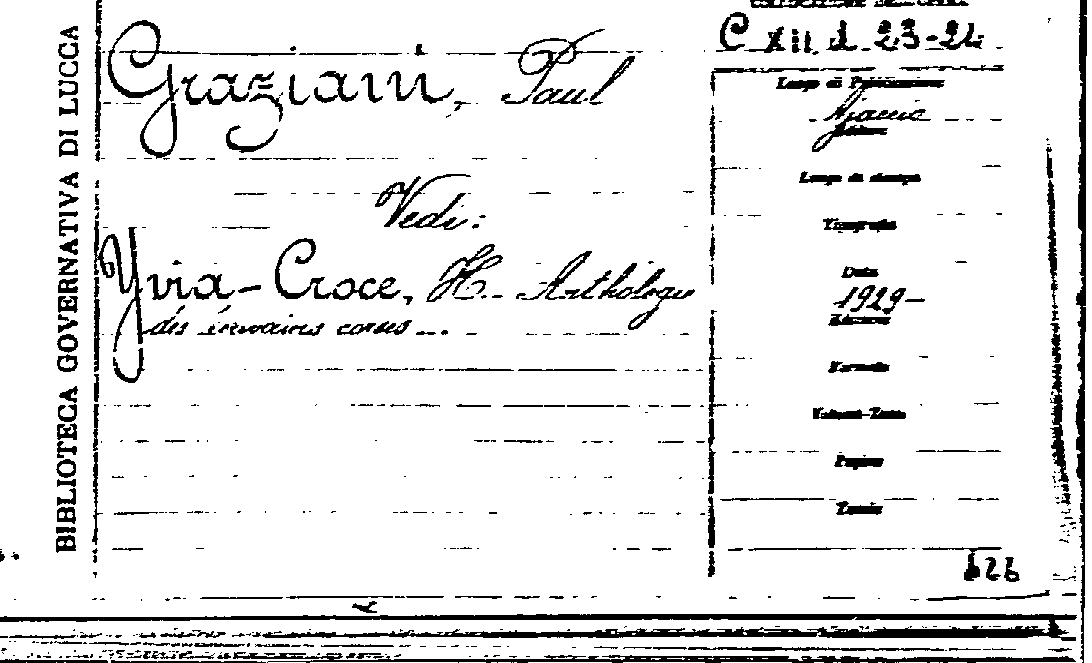 BIBLIOTECA GOVERNATIVA DI LUCCA
C XII d 23-24
Graziani, Paul
Vedi:
Yvia-Croce, H. Anthologie
des écrivains corses ...
Luogo di Pubblicazione
Ajaccio
Editore
Luogo di stampa
Tipografia
Data
1929-
Edizione
Formato
Volumi-Tomi
Pagine
Tavole
626